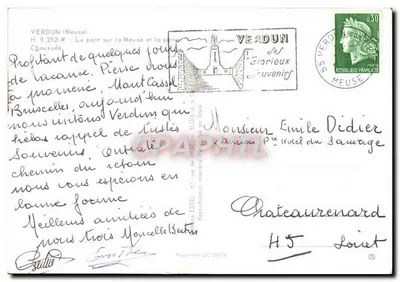 VERDUN (Meuse)
H. 9.252-R - Le pont sur la Meuse et la
Chaussée
Profitant de quelques jours
de vacance. Pierre nous
a promené. Mont Cassel
Bruxelles, aujourd'hui
nous visitons Verdun qui
hélas rappel de tristes
souvenirs.
chemin du retour
nous vous espérons en
bonne forme
Meilleures amitiés de
nous trois Marcelle
VERDUN
Ses
Glorieux
Souvenirs
0,30
REPUBLIQUE FRANCAISE
55 VERDUN
MEUSE
Monsieur Emile Didier
Hôtel du Sauvage
Chateaurenard
45 Loiret